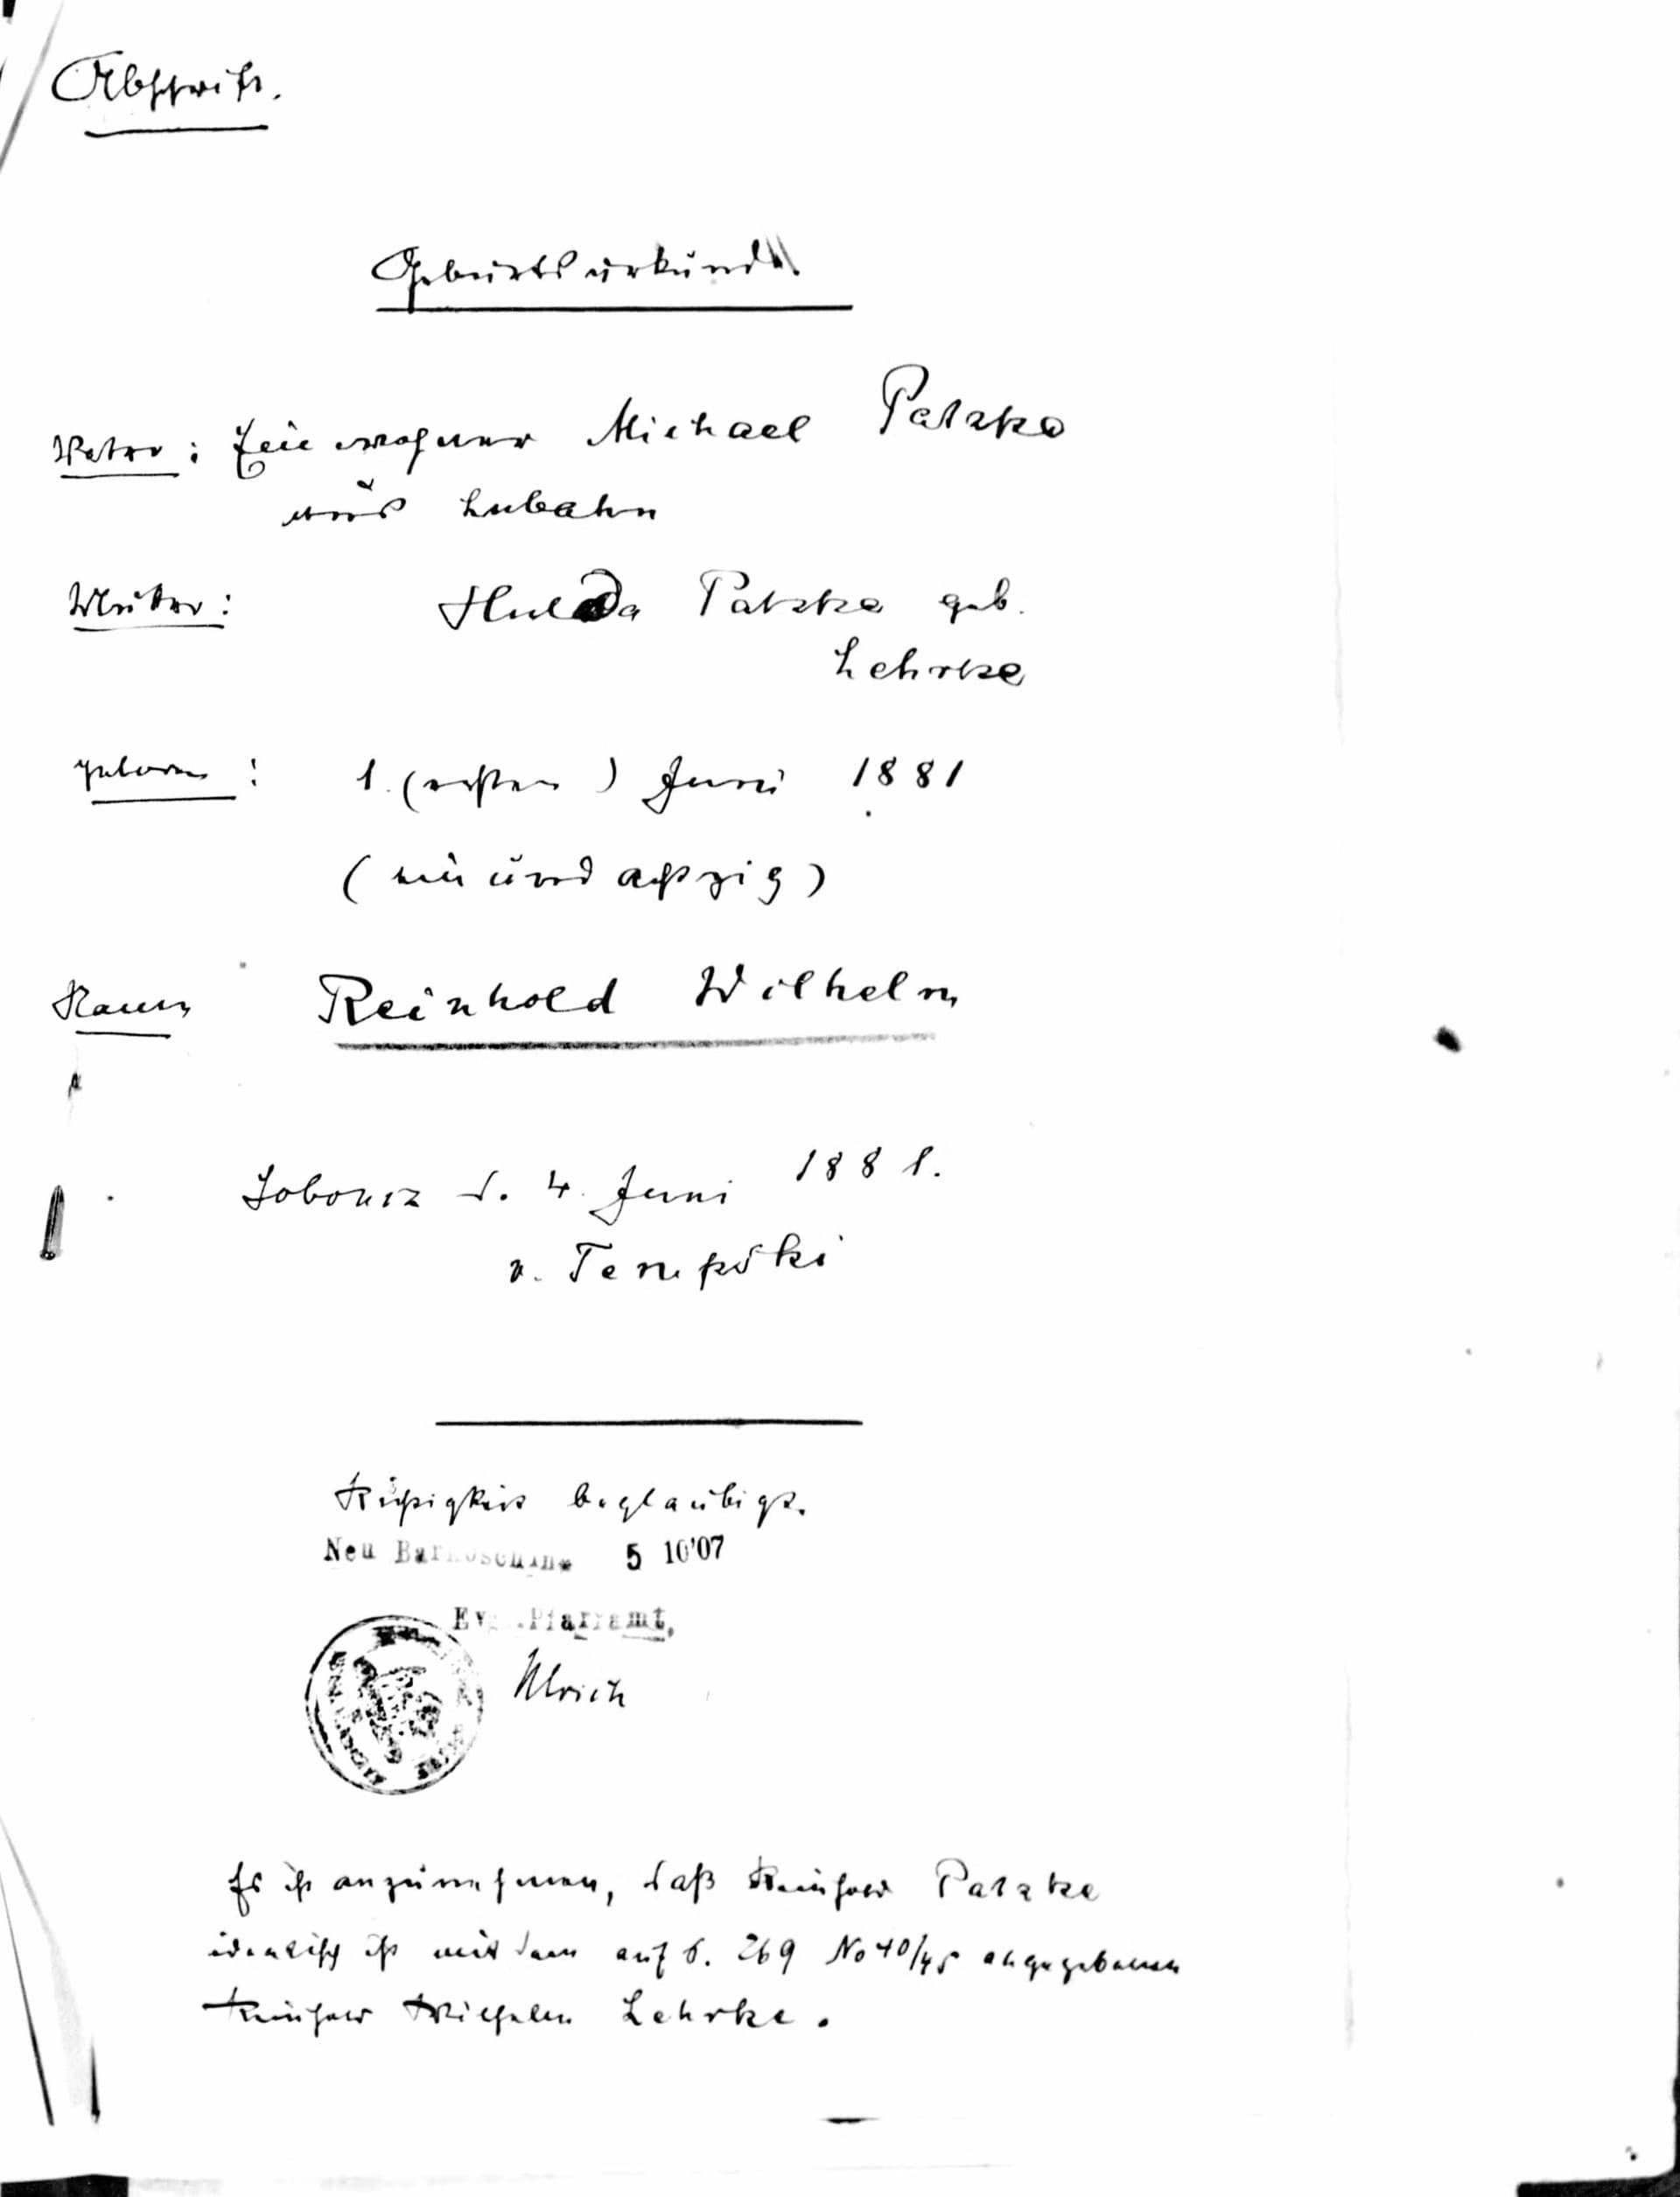 Abschrift.
Geburtsurkunde.
Vater: Einwohner Michael Patzke
aus Lubahn
Mutter: Hulda Patzke geb.
Lehrke
geboren: 1. (ersten) Juni 1881
(ein und achtzig)
Name Reinhold Wilhelm
d. 4. Juni 1881.
v.
Richtigkeit beglaubigt.
Neu Barkoschin, 5 10'07
Ev. Pfarramt,
Ulrich
Es ist anzunehmen, daß Reinhold Patzke
identisch ist mit dem auf S. 269 No 40/45 angegebenen
Reinhold Wilhelm Lehrke.